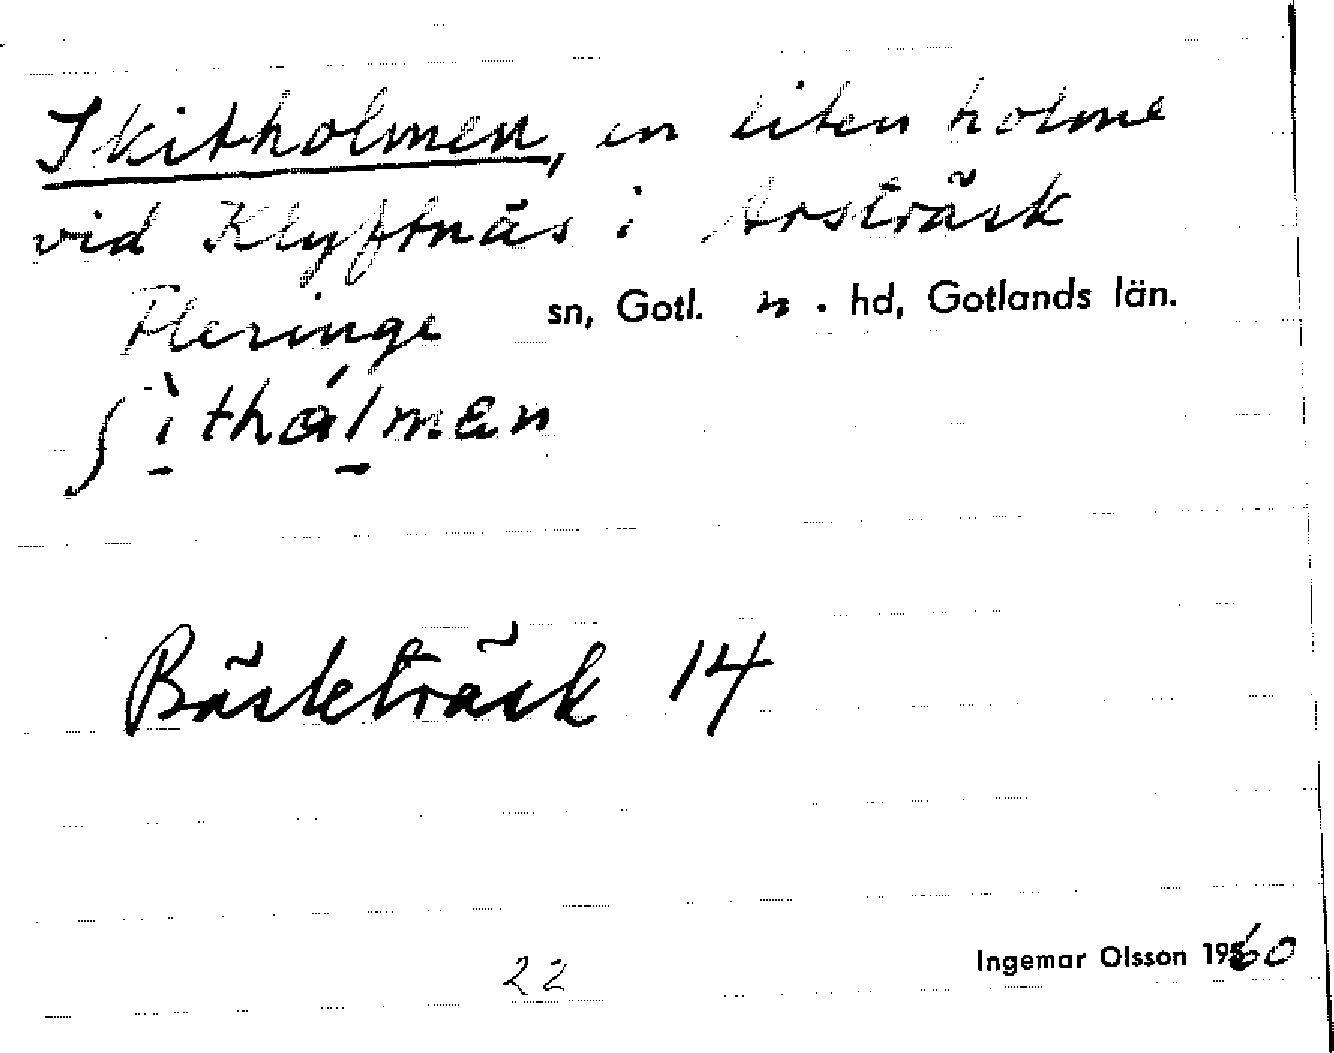 Skitholmen, en liten holme
vid Klyftnäs i Arsträsk
Fleringe sn, Gotl. n. hd, Gotlands län.
ʃìthålmen
Bästeträsk 14
Ingemar Olsson 1960
22